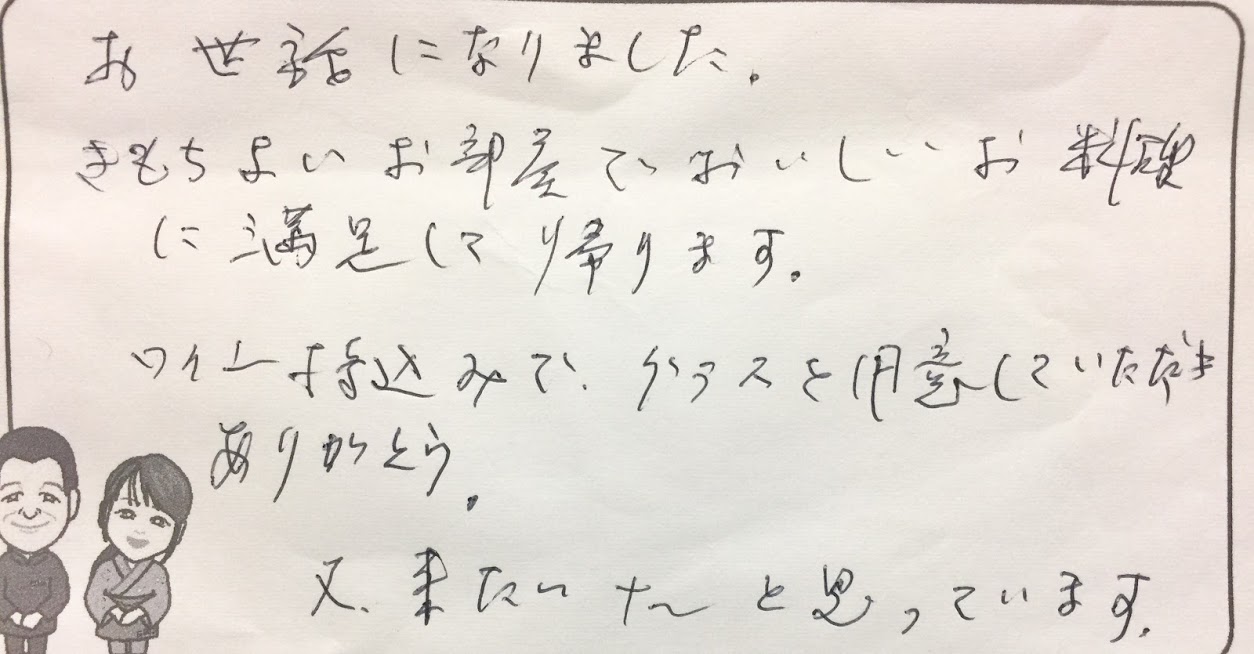 お世話になりました。
きもちよいお部屋でおいしいお料理
に満足して帰ります。
ワイン持込みで、グラスを用意していただき
ありがとう。
又、来たいナ〜と思っています。